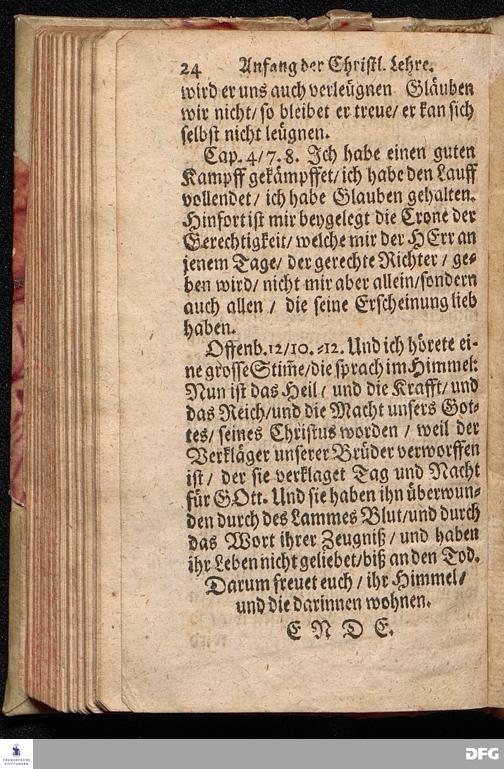 24 Anfang der Christl. Lehre.
wird er uns auch verleügnen Gläuben
wir nicht/ so bleibet er treue/ er kan sich
selbst nicht leügnen.
Cap. 4/7.8. Ich habe einen guten
Kampff gekämpffet/ ich habe den Lauff
vollendet/ ich habe Glauben gehalten.
Hinfort ist mir beygelegt die Crone der
Gerechtigkeit/ welche mir der HErr an
jenem Tage/ der gerechte Richter/ ge-
ben wird/ nicht mir aber allein/ sondern
auch allen / die seine Erscheinung lieb
haben.
Offenb. 12/10.-12. Und ich hörete ei-
ne grosse Stim̃e/ die sprach im Himmel:
Nun ist das Heil/ und die Krafft/ und
das Reich/ und die Macht unsers Got-
tes/ seines Christus worden / weil der
Verkläger unserer Brüder verworffen
ist/ der sie verklaget Tag und Nacht
für GOtt. Und sie haben ihn überwun-
den durch des Lammes Blut/ und durch
das Wort ihrer Zeugniß/ und haben
ihr Leben nicht geliebet/ biß an den Tod.
Darum freuet euch/ ihr Himmel/
und die darinnen wohnen.
E N D E.
FRANCKESCHE
STIFTUNGEN
DFG